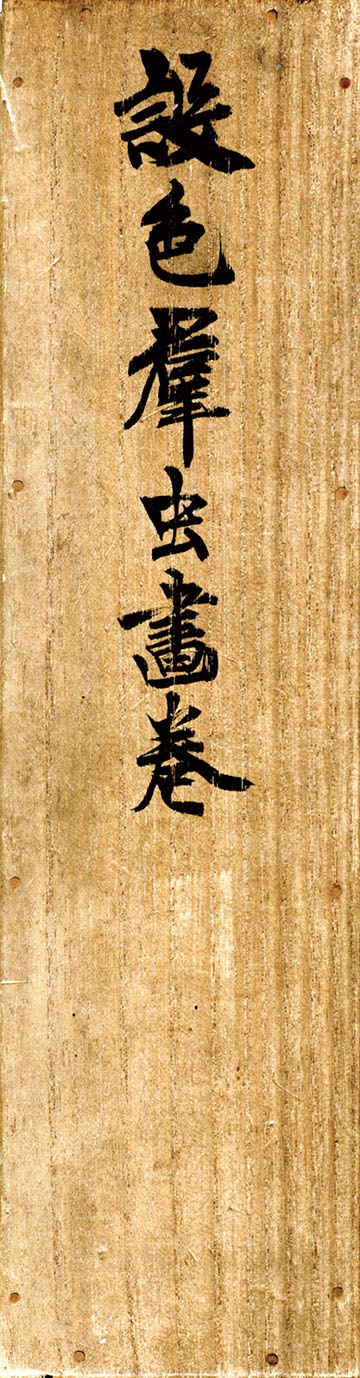 設色羣虫畫卷